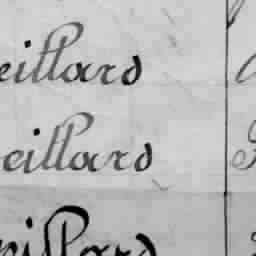 eillard
eillard
eillard